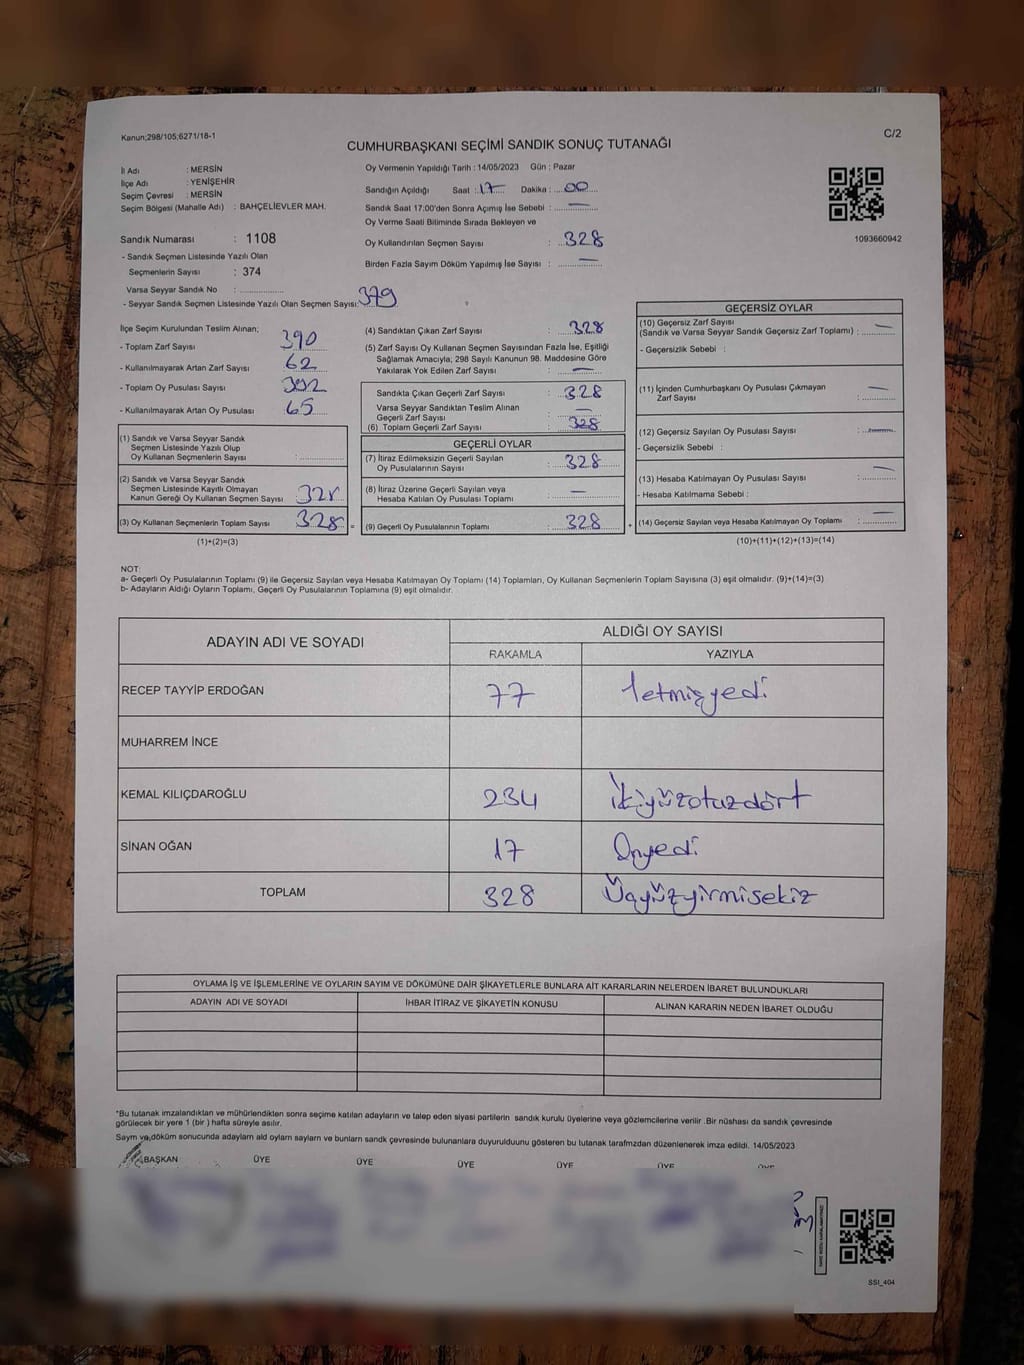 Kanun;298/105;6271/18-1
C/2
CUMHURBAŞKANI SEÇİMİ SANDIK SONUÇ TUTANAĞI
İl Adı : MERSİN
İlçe Adı : YENİŞEHİR
Seçim Çevresi : MERSİN
Seçim Bölgesi (Mahalle Adı) : BAHÇELİEVLER MAH.
Sandık Numarası : 1108
- Sandık Seçmen Listesinde Yazılı Olan
Seçmenlerin Sayısı : 374
Varsa Seyyar Sandık No : ....................
- Seyyar Sandık Seçmen Listesinde Yazılı Olan Seçmen Sayısı: 379
Oy Vermenin Yapıldığı Tarih : 14/05/2023 Gün : Pazar
Sandığın Açıldığı Saat : 17 Dakika : 00
Sandık Saat 17:00'den Sonra Açımış İse Sebebi : —
Oy Verme Saati Bitiminde Sırada Bekleyen ve
Oy Kullandırılan Seçmen Sayısı : 328
Birden Fazla Sayım Döküm Yapılmış İse Sayısı : —
1093660942
İlçe Seçim Kurulundan Teslim Alınan;
- Toplam Zarf Sayısı 390
- Kullanılmayarak Artan Zarf Sayısı 62
- Toplam Oy Pusulası Sayısı 392
- Kullanılmayarak Artan Oy Pusulası 65
(1) Sandık ve Varsa Seyyar Sandık
Seçmen Listesinde Yazılı Olup
Oy Kullanan Seçmenlerin Sayısı : ....................
(2) Sandık ve Varsa Seyyar Sandık
Seçmen Listesinde Kayıtlı Olmayan
Kanun Gereği Oy Kullanan Seçmen Sayısı : 328
(3) Oy Kullanan Seçmenlerin Toplam Sayısı : 328 =
(1)+(2)=(3)
(4) Sandıktan Çıkan Zarf Sayısı : 328
(5) Zarf Sayısı Oy Kullanan Seçmen Sayısından Fazla İse, Eşitliği
Sağlamak Amacıyla; 298 Sayılı Kanunun 98. Maddesine Göre
Yakılarak Yok Edilen Zarf Sayısı : —
Sandıkta Çıkan Geçerli Zarf Sayısı : 328
Varsa Seyyar Sandıktan Teslim Alınan
Geçerli Zarf Sayısı : —
(6) Toplam Geçerli Zarf Sayısı : 328
GEÇERLİ OYLAR
(7) İtiraz Edilmeksizin Geçerli Sayılan
Oy Pusulalarının Sayısı : 328
(8) İtiraz Üzerine Geçerli Sayılan veya
Hesaba Katılan Oy Pusulası Toplamı : —
(9) Geçerli Oy Pusulalarının Toplamı : 328 +
GEÇERSİZ OYLAR
(10) Geçersiz Zarf Sayısı
(Sandık ve Varsa Seyyar Sandık Geçersiz Zarf Toplamı) : —
- Geçersizlik Sebebi :
(11) İçinden Cumhurbaşkanı Oy Pusulası Çıkmayan
Zarf Sayısı : —
(12) Geçersiz Sayılan Oy Pusulası Sayısı : —
- Geçersizlik Sebebi :
(13) Hesaba Katılmayan Oy Pusulası Sayısı : —
- Hesaba Katılmama Sebebi :
(14) Geçersiz Sayılan veya Hesaba Katılmayan Oy Toplamı : —
(10)+(11)+(12)+(13)=(14)
NOT:
a- Geçerli Oy Pusulalarının Toplamı (9) ile Geçersiz Sayılan veya Hesaba Katılmayan Oy Toplamı (14) Toplamları, Oy Kullanan Seçmenlerin Toplam Sayısına (3) eşit olmalıdır. (9)+(14)=(3)
b- Adayların Aldığı Oyların Toplamı, Geçerli Oy Pusulalarının Toplamına (9) eşit olmalıdır.
ADAYIN ADI VE SOYADI
ALDIĞI OY SAYISI
RAKAMLA YAZIYLA
RECEP TAYYİP ERDOĞAN 77 Yetmişyedi
MUHARREM İNCE
KEMAL KILIÇDAROĞLU 234 İkiyüzotuzdört
SİNAN OĞAN 17 Onyedi
TOPLAM 328 Üçyüzyirmisekiz
OYLAMA İŞ VE İŞLEMLERİNE VE OYLARIN SAYIM VE DÖKÜMÜNE DAİR ŞİKAYETLERLE BUNLARA AİT KARARLARIN NELERDEN İBARET BULUNDUKLARI
ADAYIN ADI VE SOYADI İHBAR İTİRAZ VE ŞİKAYETİN KONUSU ALINAN KARARIN NEDEN İBARET OLDUĞU
*Bu tutanak imzalandıktan ve mühürlendikten sonra seçime katılan adayların ve talep eden siyasi partilerin sandık kurulu üyelerine veya gözlemcilerine verilir .Bir nüshası da sandık çevresinde
görülecek bir yere 1 (bir ) hafta süreyle asılır.
Saym ve,döküm sonucunda adayların ald oyların sayların ve bunların sandk çevresinde bulunanlara duyurulduunu gösteren bu tutanak tarafmzdan düzenlenerek imza edildi. 14/05/2023
BAŞKAN ÜYE ÜYE ÜYE ÜYE ÜYE ÜYE
SSI_404